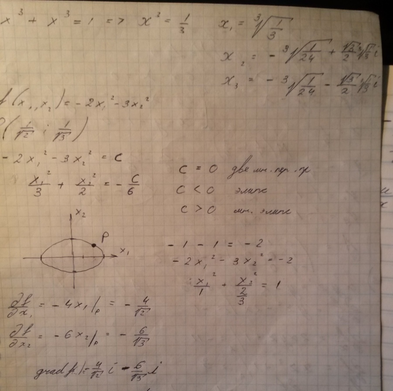 x³ + x³ = 1 => x² = 1/3
x₁ = ∛(1/3)
x₂ = - ³√(1/24) + √3/2 ³√3 i
x₃ = - ³√(1/24) - √3/2 ³√3 i
f(x₁,x₂) = -2x₁² - 3x₂²
(1/√2 ; 1/√3)
-2x₁² - 3x₂² = C
x₁²/3 + x₂²/2 = - C/6
C = 0 две мн. пр. пр
C < 0 эллипс
C > 0 мн. эллипс
x₂
P
x₁
-1 -1 = -2
-2x₁² - 3x₂² = -2
x₁²/1 + x₂²/(2/3) = 1
∂f/∂x₁ = -4x₁|ₚ = - 4/√2
∂f/∂x₂ = -6x₂|ₚ = - 6/√3
grad f|ₚ 4/√2 i - 6/√3 j